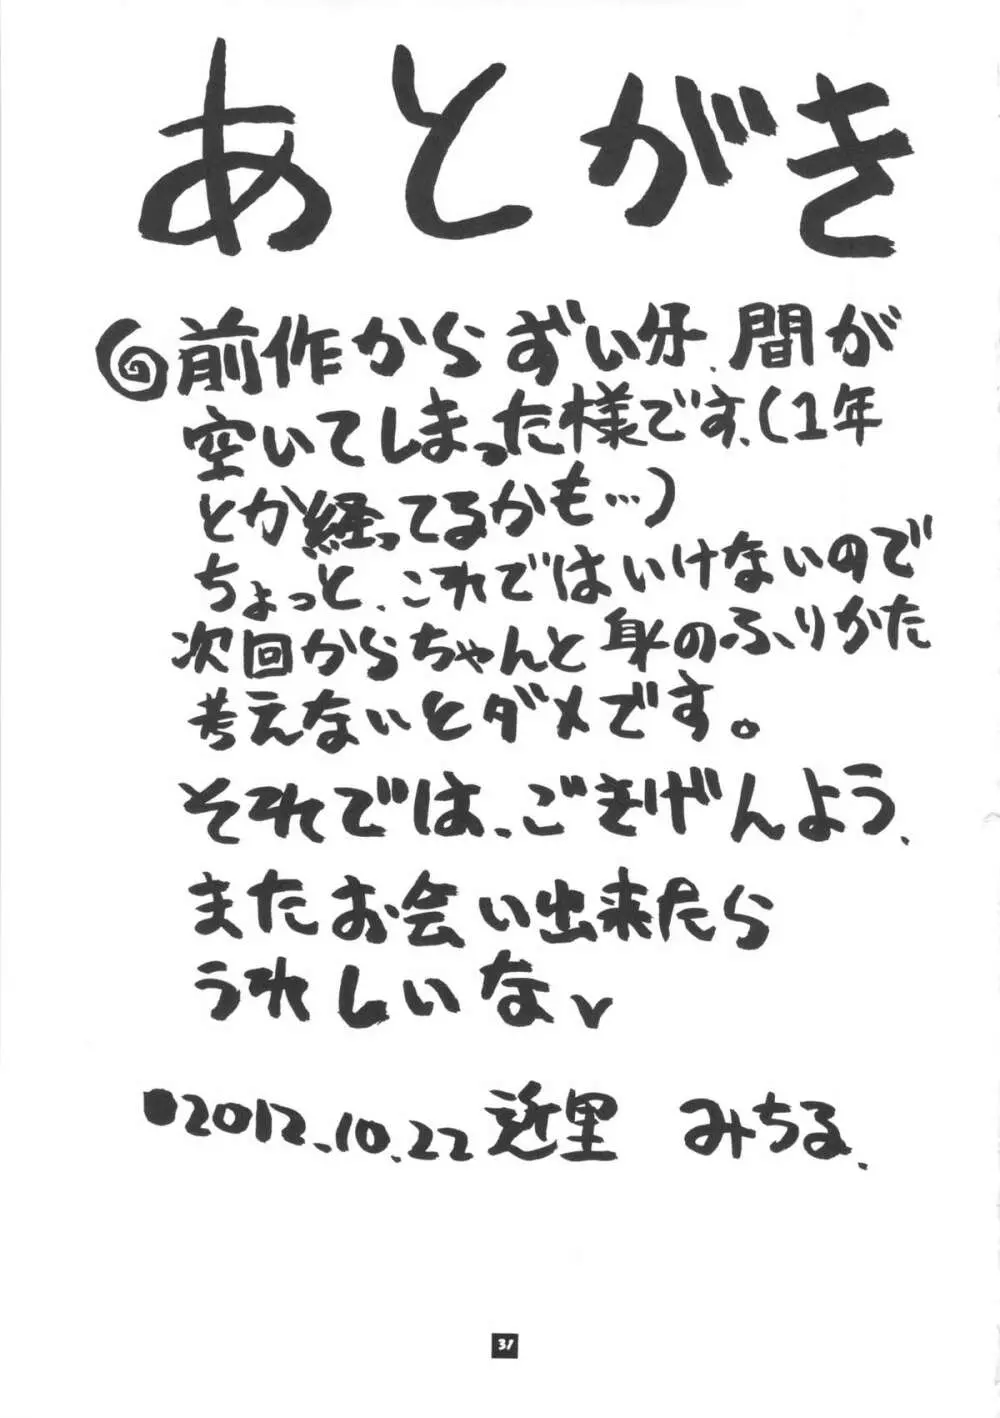 あとがき
前作からずい分、間が
空いてしまった様です、(1年
とか経ってるかも…)
ちょっと、これではいけないので
次回からちゃんと身のふりかた
考えないとダメです。
それでは、ごきげんよう、
またお会い出来たら
うれしいな
●2012.10.22 近里 みちる.
31